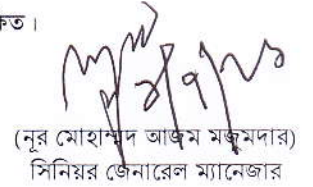 কত।
(নূর মোহাম্মদ আজম মজুমদার)
সিনিয়র জেনারেল ম্যানেজার